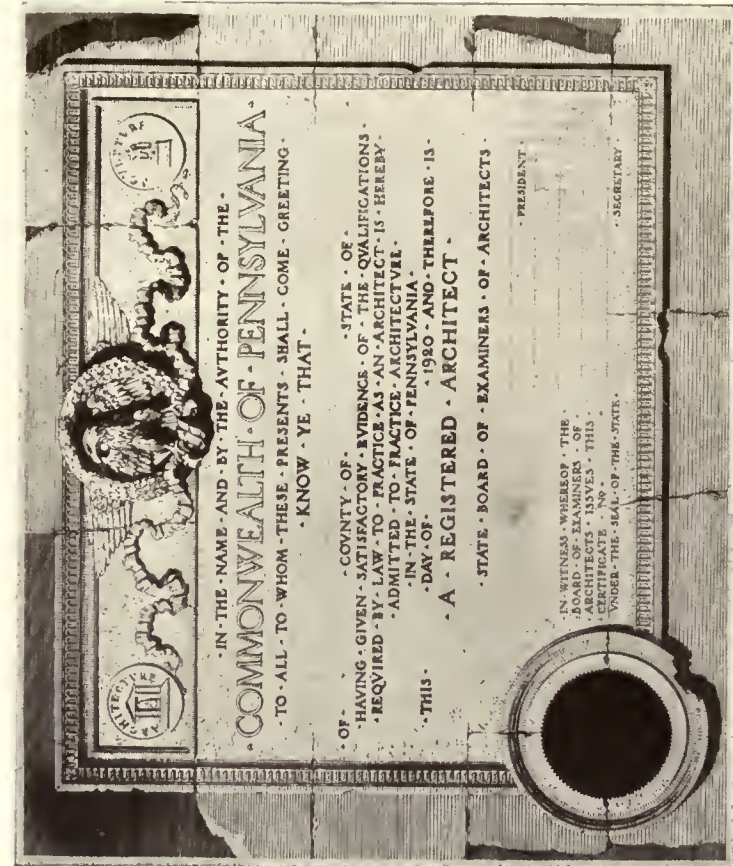 ARCHITECTVRE
· IN · THE · NAME · AND · BY · THE · AVTHORITY · OF · THE ·
COMMONWEALTH · OF · PENNSYLVANIA ·
· TO · ALL · TO · WHOM · THESE · PRESENTS · SHALL · COME · GREETING ·
· KNOW · YE · THAT ·
· OF · · COVNTY · OF · · STATE · OF ·
· HAVING · GIVEN · SATISFACTORY · EVIDENCE · OF · THE · QVALIFICATIONS ·
· REQVIRED · BY · LAW · TO · PRACTICE · AS · AN · ARCHITECT · IS · HEREBY ·
· ADMITTED · TO · PRACTICE · ARCHITECTVRE ·
· IN · THE · STATE · OF · PENNSYLVANIA ·
· THIS · · DAY · OF · · 1920 · AND · THEREFORE · IS ·
· A · REGISTERED · ARCHITECT ·
· STATE · BOARD · OF · EXAMINERS · OF · ARCHITECTS ·
· PRESIDENT ·
· IN · WITNESS · WHEREOF · THE ·
· BOARD · OF · EXAMINERS · OF ·
· ARCHITECTS · ISSVES · THIS ·
· CERTIFICATE · NO ·
· VNDER · THE · SEAL · OF · THE · STATE ·
· SECRETARY ·